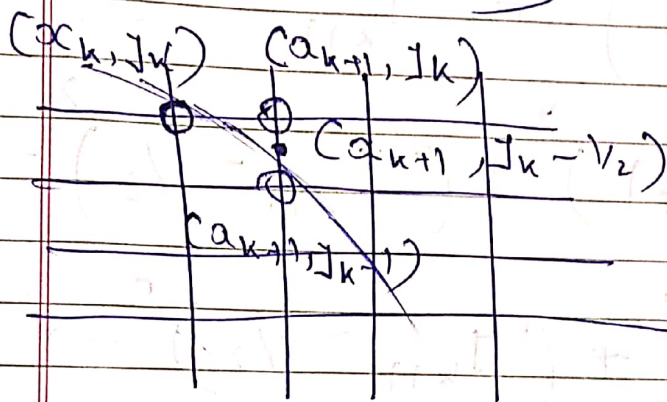 (x_k, y_k) (a_{k+1}, y_k)
(a_{k+1}, y_k - 1/2)
(a_{k+1}, y_k - 1)